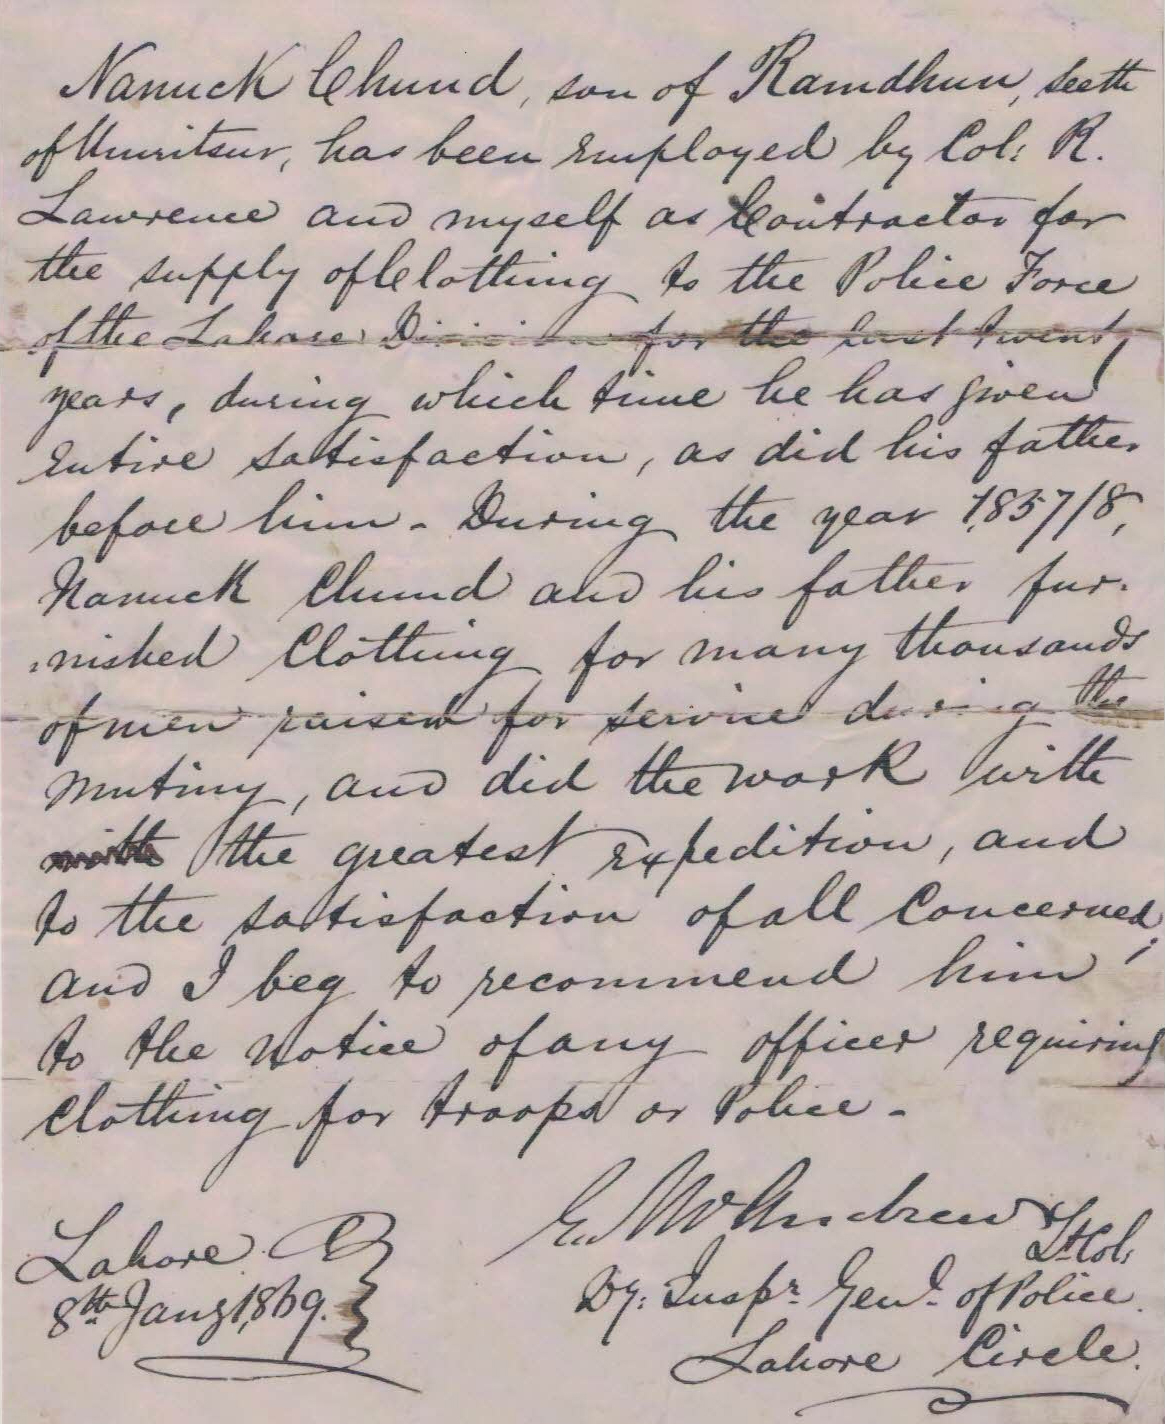 Nanuck Chund, son of Ramdhun, seeth
of Umritsur, has been employed by Col: R.
Lawrence and myself as Contractor for
the supply of Clothing to the Police Force
of the Lahore Division for the last twenty
years, during which time he has given
entire satisfaction, as did his father
before him - During the year 1857/8,
Nanuck Chund and his father fur-
-nished Clothing for many thousands
of men raised for service during the
mutiny, and did the work with
with the greatest expedition, and
to the satisfaction of all concerned,
and I beg to recommend him
to the notice of any officer requiring
Clothing for troops or Police -
E. McAndrew Lt Col:
Lahore
8th Jany 1869.
Dy: Inspr. Genl. of Police.
Lahore Circle.